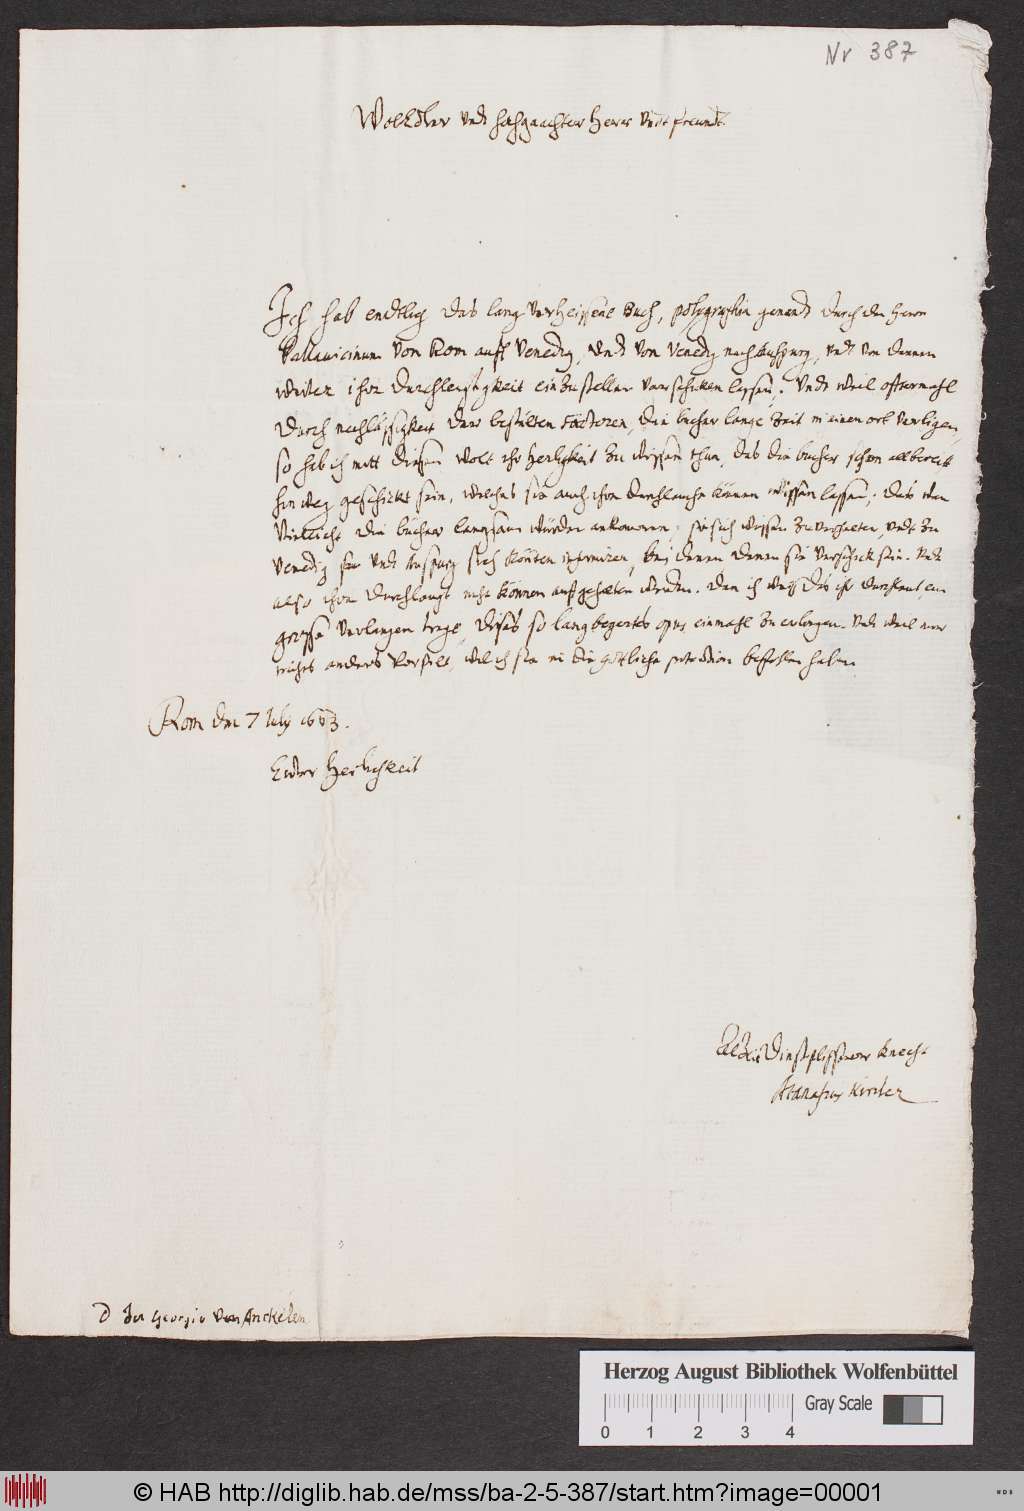 Nr 387
WolEdler undt hochgeachter Herr undt freundt
Ich hab endtlich das lang verheissene Buch, polygraphia genandt durch den Herrn
Pallavicinum von Rom auff Venedig, undt von Venedig nach Auspurg, undt von dannen
weiter ihro durchleuchtigkeit einzustellen verschicken lassen. Undt weil offtermahl
durch nachlässigkeit der bestelten Factoren, die bucher lange Zeit in einen ort verligen,
so hab ich mitt diesem wolt ihr Herligkeit zu wissen thun, das die bucher schon allbereitt
hinweg geschickt sein, welches sie auch ihro durchleucht können wissen lassen; das wan
vielleicht die bücher langsam würden ankommen, sie sich wissen zu verhalten, undt zu
Venedig undt Auspurg sich könten informiren, bei denen sie verschickt sein. Undt
also ihro durchlaucht nicht können auffgehalten werden. Dan ich weiss das ihr durchleucht, ein
grosse verlangen trage, dises so lang begertes opus einmahl zu erlangen. Undt weil mir
nichts anders vorfelt, wil ich sie in die göttliche protection befohlen haben
Rom den 7 July 1663.
Ewer Herlichkeit
Dinstflissener Knecht
Athanasius Kircher
D Io Georgio von Anckelen
Herzog August Bibliothek Wolfenbüttel
Gray Scale
0 1 2 3 4
© HAB http://diglib.hab.de/mss/ba-2-5-387/start.htm?image=00001
WDB